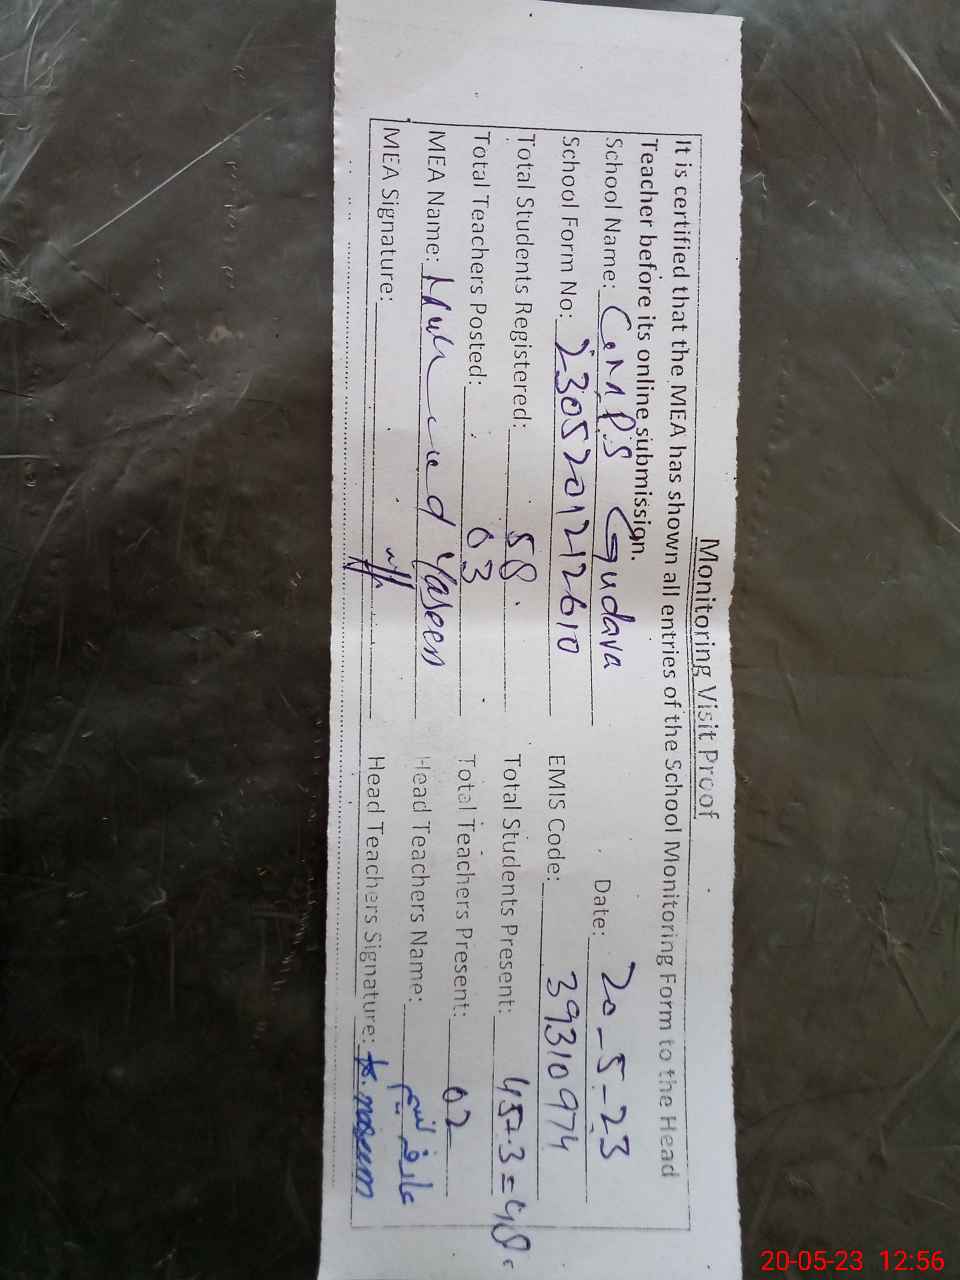 Monitoring Visit Proof
It is certified that the MEA has shown all entries of the School Monitoring Form to the Head
Teacher before its online submission.
School Name: G.M.P.S Gudava Date: 20-5-23
School Form No: 230520121 2610 EMIS Code: 39310974
Total Students Registered: 58 Total Students Present: 45+3=48
Total Teachers Posted: 03 Total Teachers Present: 02
MEA Name: Yaseen Head Teachers Name: عارفہ نسیم
MEA Signature: Head Teachers Signature: naseem
20-05-23 12:56